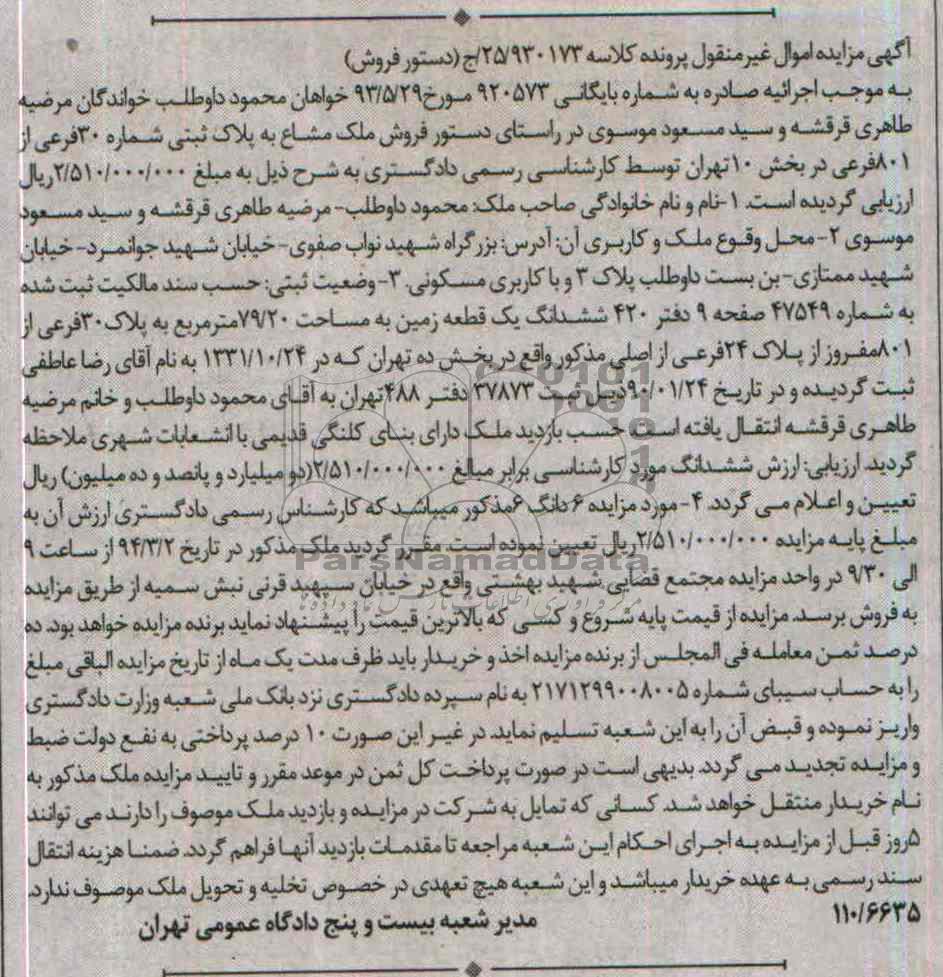 آگهی مزایده اموال غیرمنقول پرونده کلاسه ۲۵/۹۳۰۱۷۳/ج (دستور فروش)
به موجب اجرائیه صادره به شماره بایگانی ۹۲۰۵۷۳ مورخ ۹۳/۵/۲۹ خواهان محمود داوطلب خواندگان مرضیه
طاهری قرقشه و سید مسعود موسوی در راستای دستور فروش ملک مشاع به پلاک ثبتی شماره ۳۰فرعی از
۸۰۱فرعی در بخش ۱۰تهران توسط کارشناسی رسمی دادگستری به شرح ذیل به مبلغ ۲/۵۱۰/۰۰۰/۰۰۰ریال
ارزیابی گردیده است. ۱-نام و نام خانوادگی صاحب ملک: محمود داوطلب- مرضیه طاهری قرقشه و سید مسعود
موسوی ۲- محل وقوع ملک و کاربری آن: آدرس: بزرگراه شهید نواب صفوی- خیابان شهید جوانمرد- خیابان
شهید ممتازی- بن بست داوطلب پلاک ۳ و با کاربری مسکونی. ۳- وضعیت ثبتی: حسب سند مالکیت ثبت شده
به شماره ۴۷۵۴۹ صفحه ۹ دفتر ۴۲۰ ششدانگ یک قطعه زمین به مساحت ۷۹/۲۰مترمربع به پلاک ۳۰فرعی از
۸۰۱مفروز از پلاک ۲۴فرعی از اصلی مذکور واقع در بخش ده تهران که در ۱۳۳۱/۱۰/۲۴ به نام آقای رضا عاطفی
ثبت گردیده و در تاریخ ۹۰/۰۱/۲۴ذیل ثبت ۳۷۸۷۳ دفتر ۴۸۸تهران به آقای محمود داوطلب و خانم مرضیه
طاهری قرقشه انتقال یافته است حسب بازدید ملک دارای بنای کلنگی قدیمی با انشعابات شهری ملاحظه
گردید. ارزیابی: ارزش ششدانگ مورد کارشناسی برابر مبالغ ۲/۵۱۰/۰۰۰/۰۰۰(دو میلیارد و پانصد و ده میلیون) ریال
تعیین و اعلام می گردد. ۴- مورد مزایده ۶ دانگ ۶مذکور میباشد که کارشناس رسمی دادگستری ارزش آن به
مبلغ پایه مزایده ۲/۵۱۰/۰۰۰/۰۰۰ریال تعیین نموده است. مقرر گردید ملک مذکور در تاریخ ۹۴/۳/۲ از ساعت ۹
الی ۹/۳۰ در واحد مزایده مجتمع قضایی شهید بهشتی واقع در خیابان سپهبد قرنی نبش سمیه از طریق مزایده
به فروش برسد. مزایده از قیمت پایه شروع و کسی که بالاترین قیمت را پیشنهاد نماید برنده مزایده خواهد بود. ده
درصد ثمن معامله فی المجلس از برنده مزایده اخذ و خریدار باید ظرف مدت یک ماه از تاریخ مزایده الباقی مبلغ
را به حساب سیبای شماره ۲۱۷۱۲۹۹۰۰۸۰۰۵ به نام سپرده دادگستری نزد بانک ملی شعبه وزارت دادگستری
واریز نموده و قبض آن را به این شعبه تسلیم نماید. در غیر این صورت ۱۰ درصد پرداختی به نفع دولت ضبط
و مزایده تجدید می گردد. بدیهی است در صورت پرداخت کل ثمن در موعد مقرر و تایید مزایده ملک مذکور به
نام خریدار منتقل خواهد شد. کسانی که تمایل به شرکت در مزایده و بازدید ملک موصوف را دارند می توانند
۵روز قبل از مزایده به اجرای احکام این شعبه مراجعه تا مقدمات بازدید آنها فراهم گردد. ضمنا هزینه انتقال
سند رسمی به عهده خریدار میباشد و این شعبه هیچ تعهدی در خصوص تخلیه و تحویل ملک موصوف ندارد.
۱۱۰/۶۶۳۵ مدیر شعبه بیست و پنج دادگاه عمومی تهران
ParsNamadData